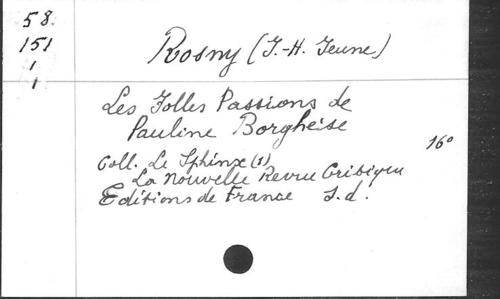 58
151
1
1
Rosny (J.-H. Jeune)
Les Folles Passions de
Pauline Borghèise
16°
Coll. Le Sphinx (1)
La Nouvelle Revue Critique
Editions de France S.d.